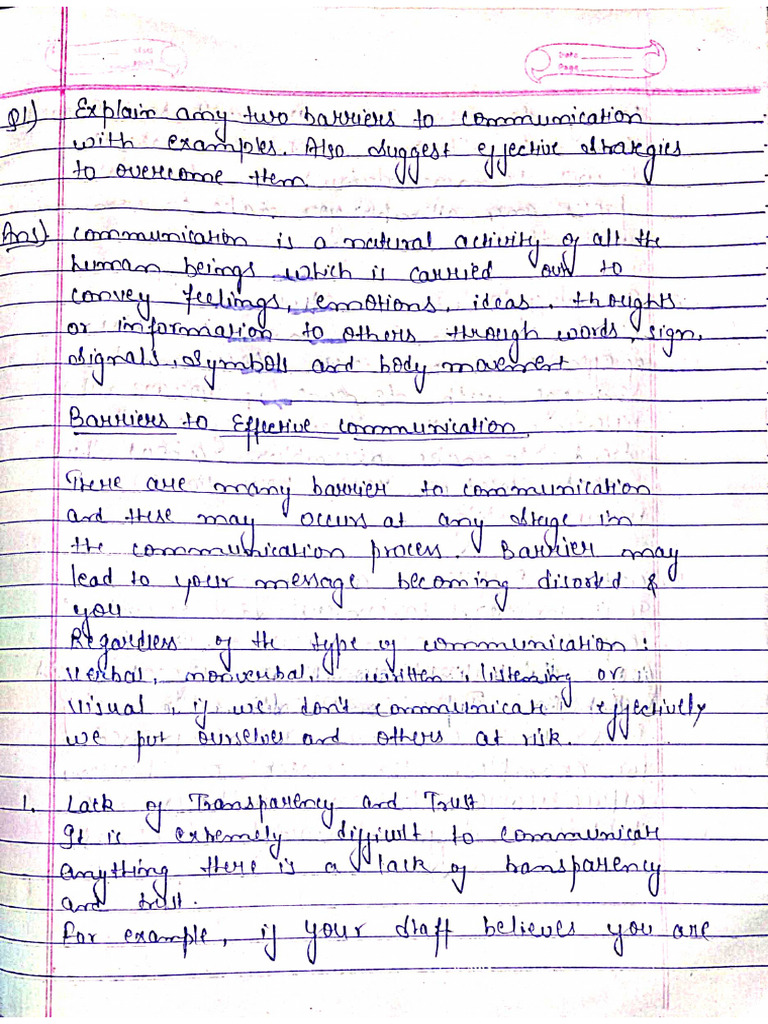 Date
Page
Q1) Explain any two barriers to communication
with examples. Also suggest effective strategies
to overcome them.
Ans) Communication is a natural activity of all the
human beings which is carried out to
convey feelings, emotions, ideas, thoughts
or information to others through words, sign,
signals, symbols and body movement
Barriers to Effective Communication
There are many barrier to communication
and these may occurs at any stage in
the communication process. Barrier may
lead to your message becoming disorted &
you
Regardless of the type of communication :
verbal, nonverbal, written, listening or
visual, if we don't communicate effectively
we put ourselves and others at risk.
1. Lack of Transparency and Trust
It is extremely difficult to communicate
anything there is a lack of transparency
and trust.
For example, if your staff believes you are